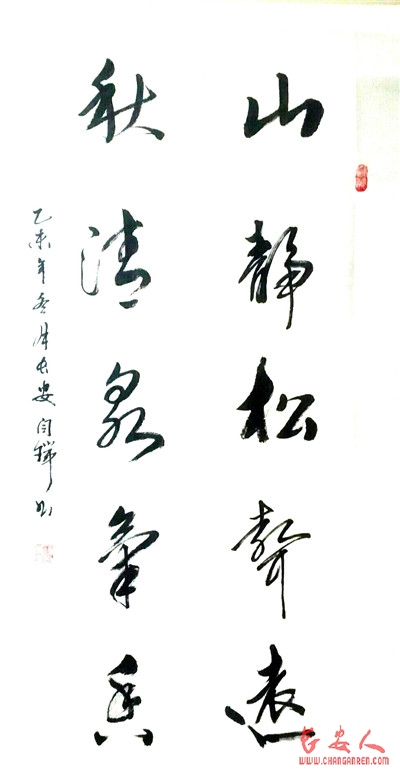 山靜松聲遠
秋清泉氣香
乙未年冬長安書
长安人
WWW.CHANGANREN.COM